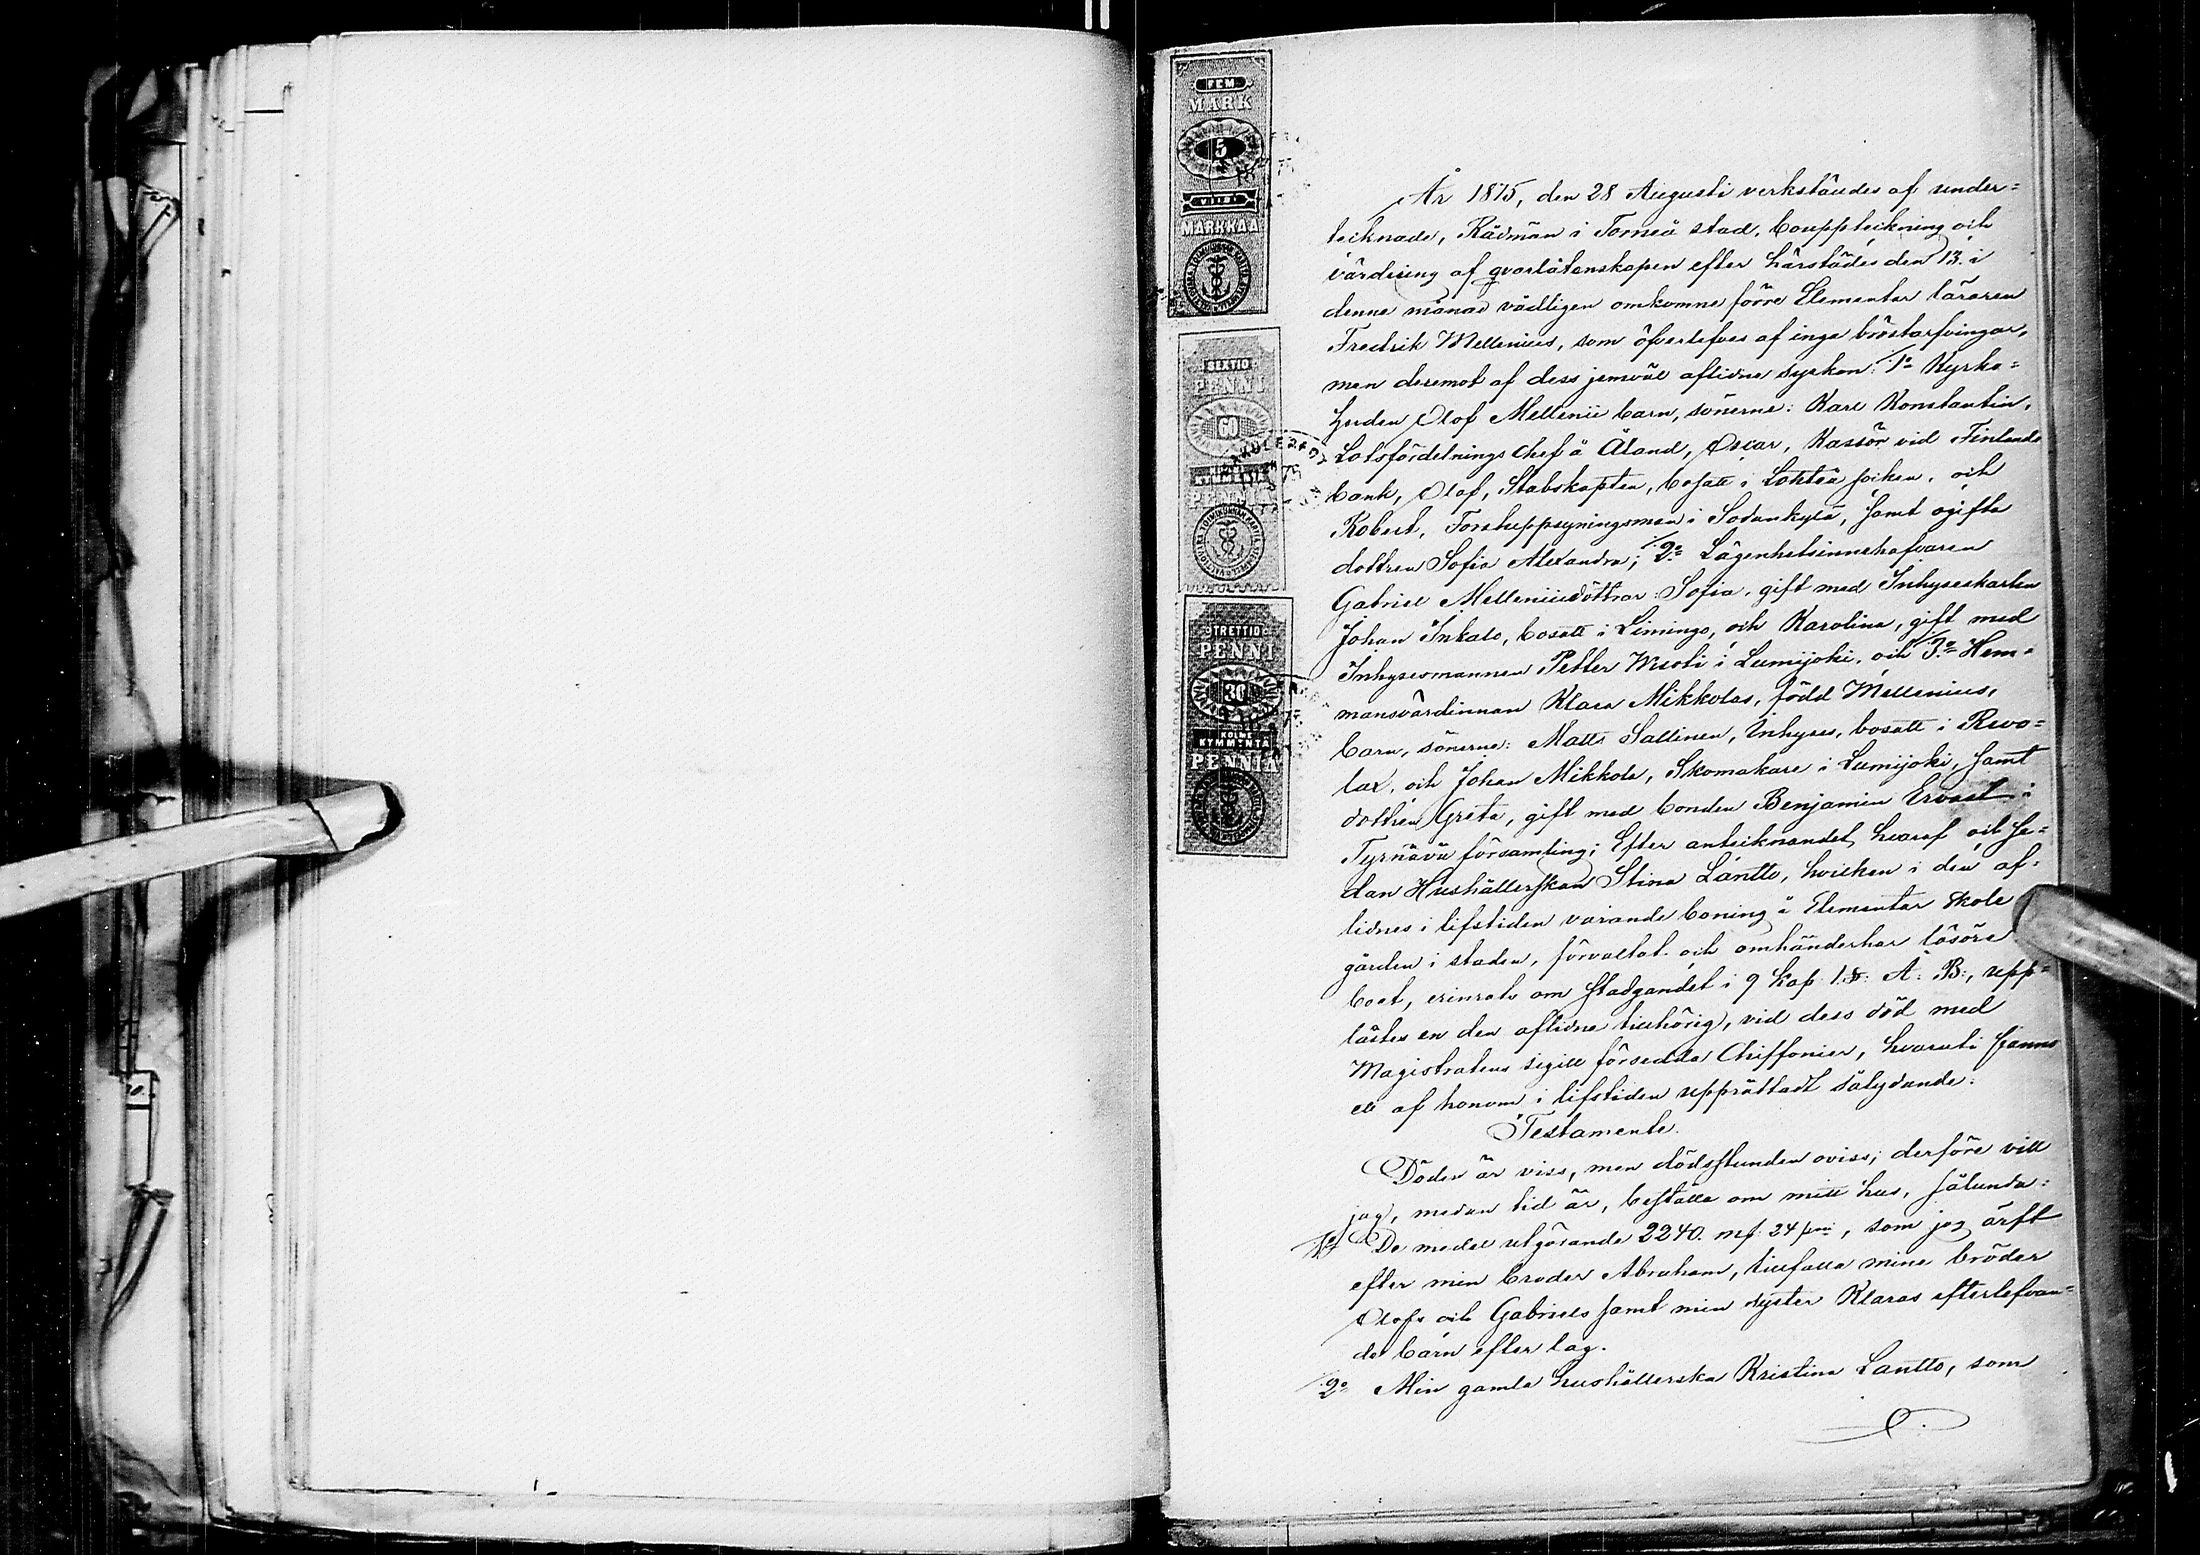 FEM
MARK
5
VIISI
MARKKAA
SEXTIO
PENNI
60
KYMMENTÄ
PENNIÄ
TRETTIO
PENNI
30
KOLME
KYMMENTÄ
PENNIÄ
År 1875, den 28 Augusti verkstäldes af under=
tecknade, Rådmän i Torneå stad, bouppteckning och
värdering af qvarlåtenskapen efter härstädes den 13. i
denne månad vådligen omkomne förre Elementar läraren
Fredrik Mellenius, som öfverlefves af inga bröstarfvingar,
men deremot af dess jemväl aflidne syskon: 1o Kyrko=
herden Olof Mellenii barn, sönerne: Karl Konstantin,
Lotsfördelnings Chef å Åland, Oscar, Kassör vid Finlands
bank, Olof, Stabskapten, bosatt i Lohteå socken, och
Robert, Forstuppsyningsman i Sodankylä, samt ogifta
dottren Sofia Alexandra; 2o Lägenhetsinnehafvaren
Gabriel Mellenii döttrar: Sofia, gift med Inhyseskarlen
Johan Inkala, bosatt i Limingo, och Karolina, gift med
Inhysesmannen Petter Wisoti i Lumijoki, och 3o Hem=
mansvärdinnan Klara Mikkolas, född Mellenius,
barn, sönerne: Matts Sallinen, Inhyses, bosatt i Revo=
lax, och Johan Mikkola, Skomakare i Lumijoki, samt
dottren Greta, gift med bonden Benjamin Ervast i
Tyrnävä församling; Efter antecknandet hvaraf och se=
dan Hushållerskan Stina Lantto, hvilken i den af=
lidnes i lifstiden varande boning å Elementar skole
gården i staden, förvaltat och omhänderhar lösöre
boet, erinrats om stadgandet i 9 Kap. 1 §. Ä. B., upp=
låstes en den aflidne tillhörig, vid dess död med
Magistratens sigill försedda Chiffonier, hvaruti fanns
ett af honom i lifstiden upprättadt sålydande:
Testamente.
Döden är viss, men dödsstunden oviss; derföre vill
jag, medan tid är, beställa om mitt hus, sålunda:
1o De medel utgörande 2240. mf 24 pni, som jag ärft
efter min broder Abraham, tillfalla mine bröder
Olofs och Gabriels samt min syster Klaras efterlefvan=
de barn efter lag.
2o Min gamla hushållerska Kristina Lantto, som